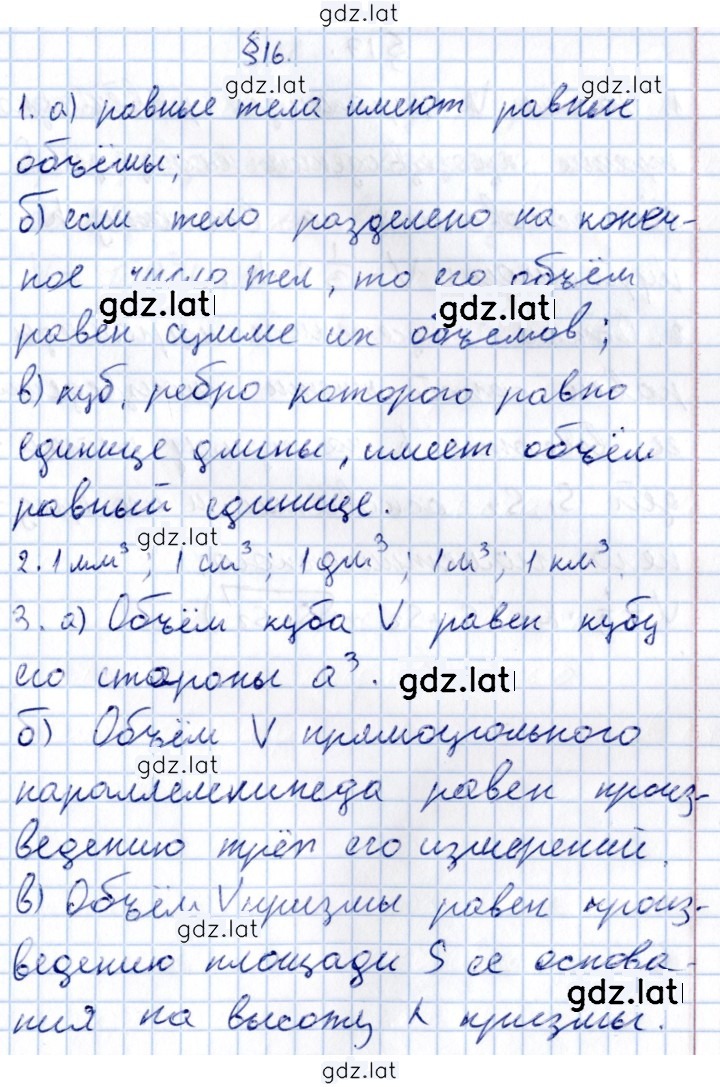 gdz.lat
§16.
gdz.lat
gdz.lat
1. а) равные тела имеют равные
объёмы;
б) если тело разделено на конеч-
ное число тел, то его объём
gdz.lat
gdz.lat
равен сумме их объёмов;
в) куб, ребро которого равно
единице длины, имеет объём
равный единице.
gdz.lat
2. 1 мм³; 1 см³; 1 дм³; 1 м³; 1 км³.
3. а) Объём куба V равен кубу
его стороны a³.
gdz.lat
б) Объём V прямоугольного
gdz.lat
параллелепипеда равен произ-
ведению трёх его измерений.
в) Объём V призмы равен произ-
gdz.lat
ведению площади S ее основа-
ния на высоту h призмы.
gdz.lat
gdz.lat